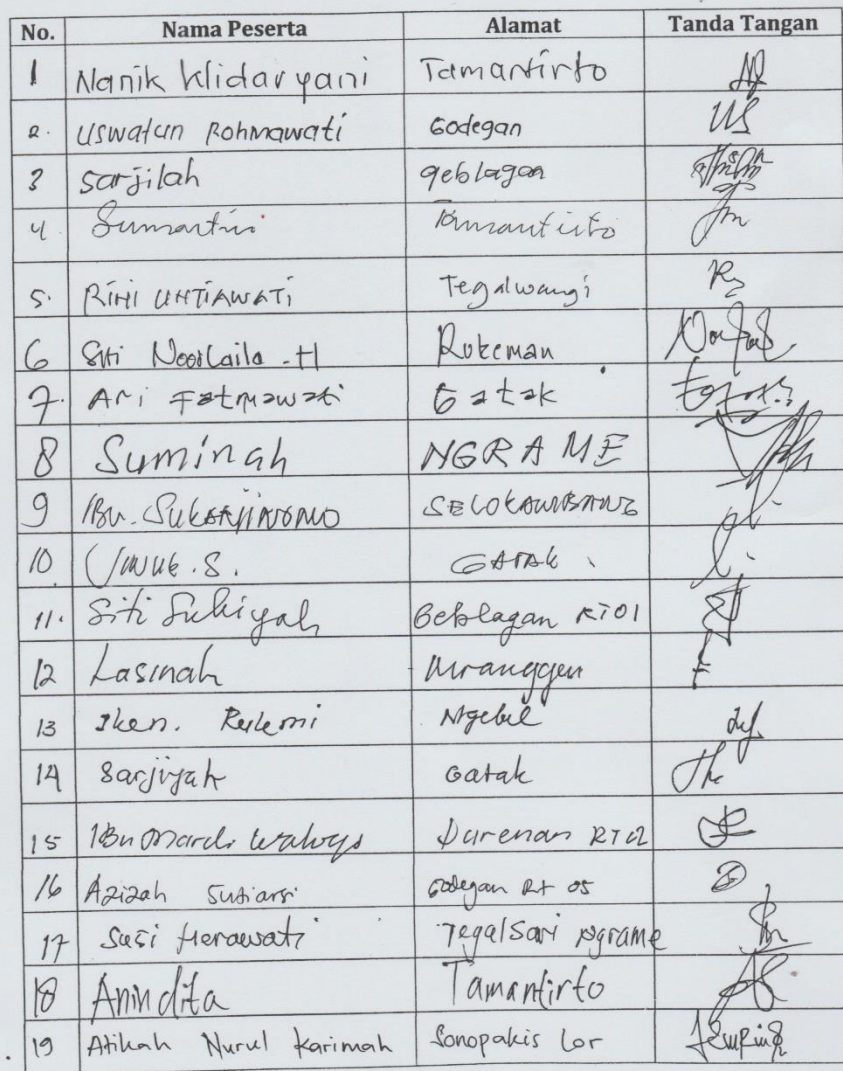 No. Nama Peserta Alamat Tanda Tangan
1 Nanik Klidaryani Tamantirto
2. Uswatun Rohmawati Godegan
3 Sarjilah geblagan
4 Sumartini Tamantirto
5. RINI UNTIAWATI Tegalwangi
6 Siti Noorlaila .H Rukeman
7. Ari Fatmawati Gatak
8 Suminah NGRAME
9 IBu. SELOKAMBANG
10 S. GATAK
11. Siti Geblagan RT01
12 Lasinah Mranggen
13 Ngebel
14 Sarjiyah Gatak
15 IBu Mardi Waluyo Durenan RT02
16 Azizah Sutiarsi Godegan Rt 05
17 Susi Herawati Tegalsari Ngrame
18 Anindita Tamantirto
19 Atikah Nurul Karimah Sonopakis Lor